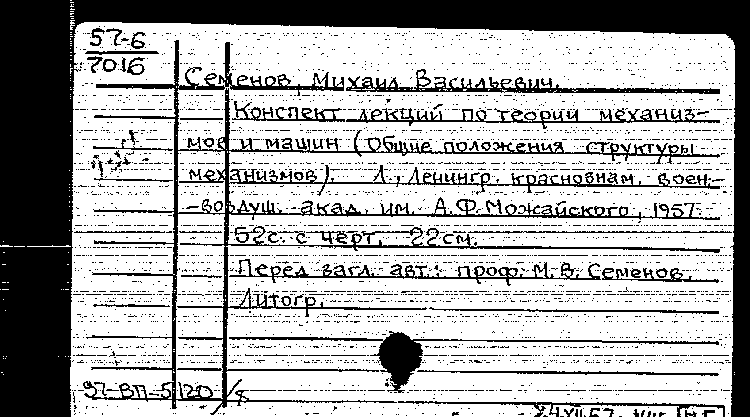 57-6
7016
Семенов, Михаил Васильевич.
Конспект лекций по теории механиз-
мов и машин (Общие положения структуры
механизмов). Л., Ленингр. краснознам. воен.-
-воздуш. акад. им. А.Ф. Можайского, 1957.
52с. с черт. 22см.
Перед загл. авт.: проф. М.В. Семенов.
Литогр.
97-ВП-5120/8
24 VII 57